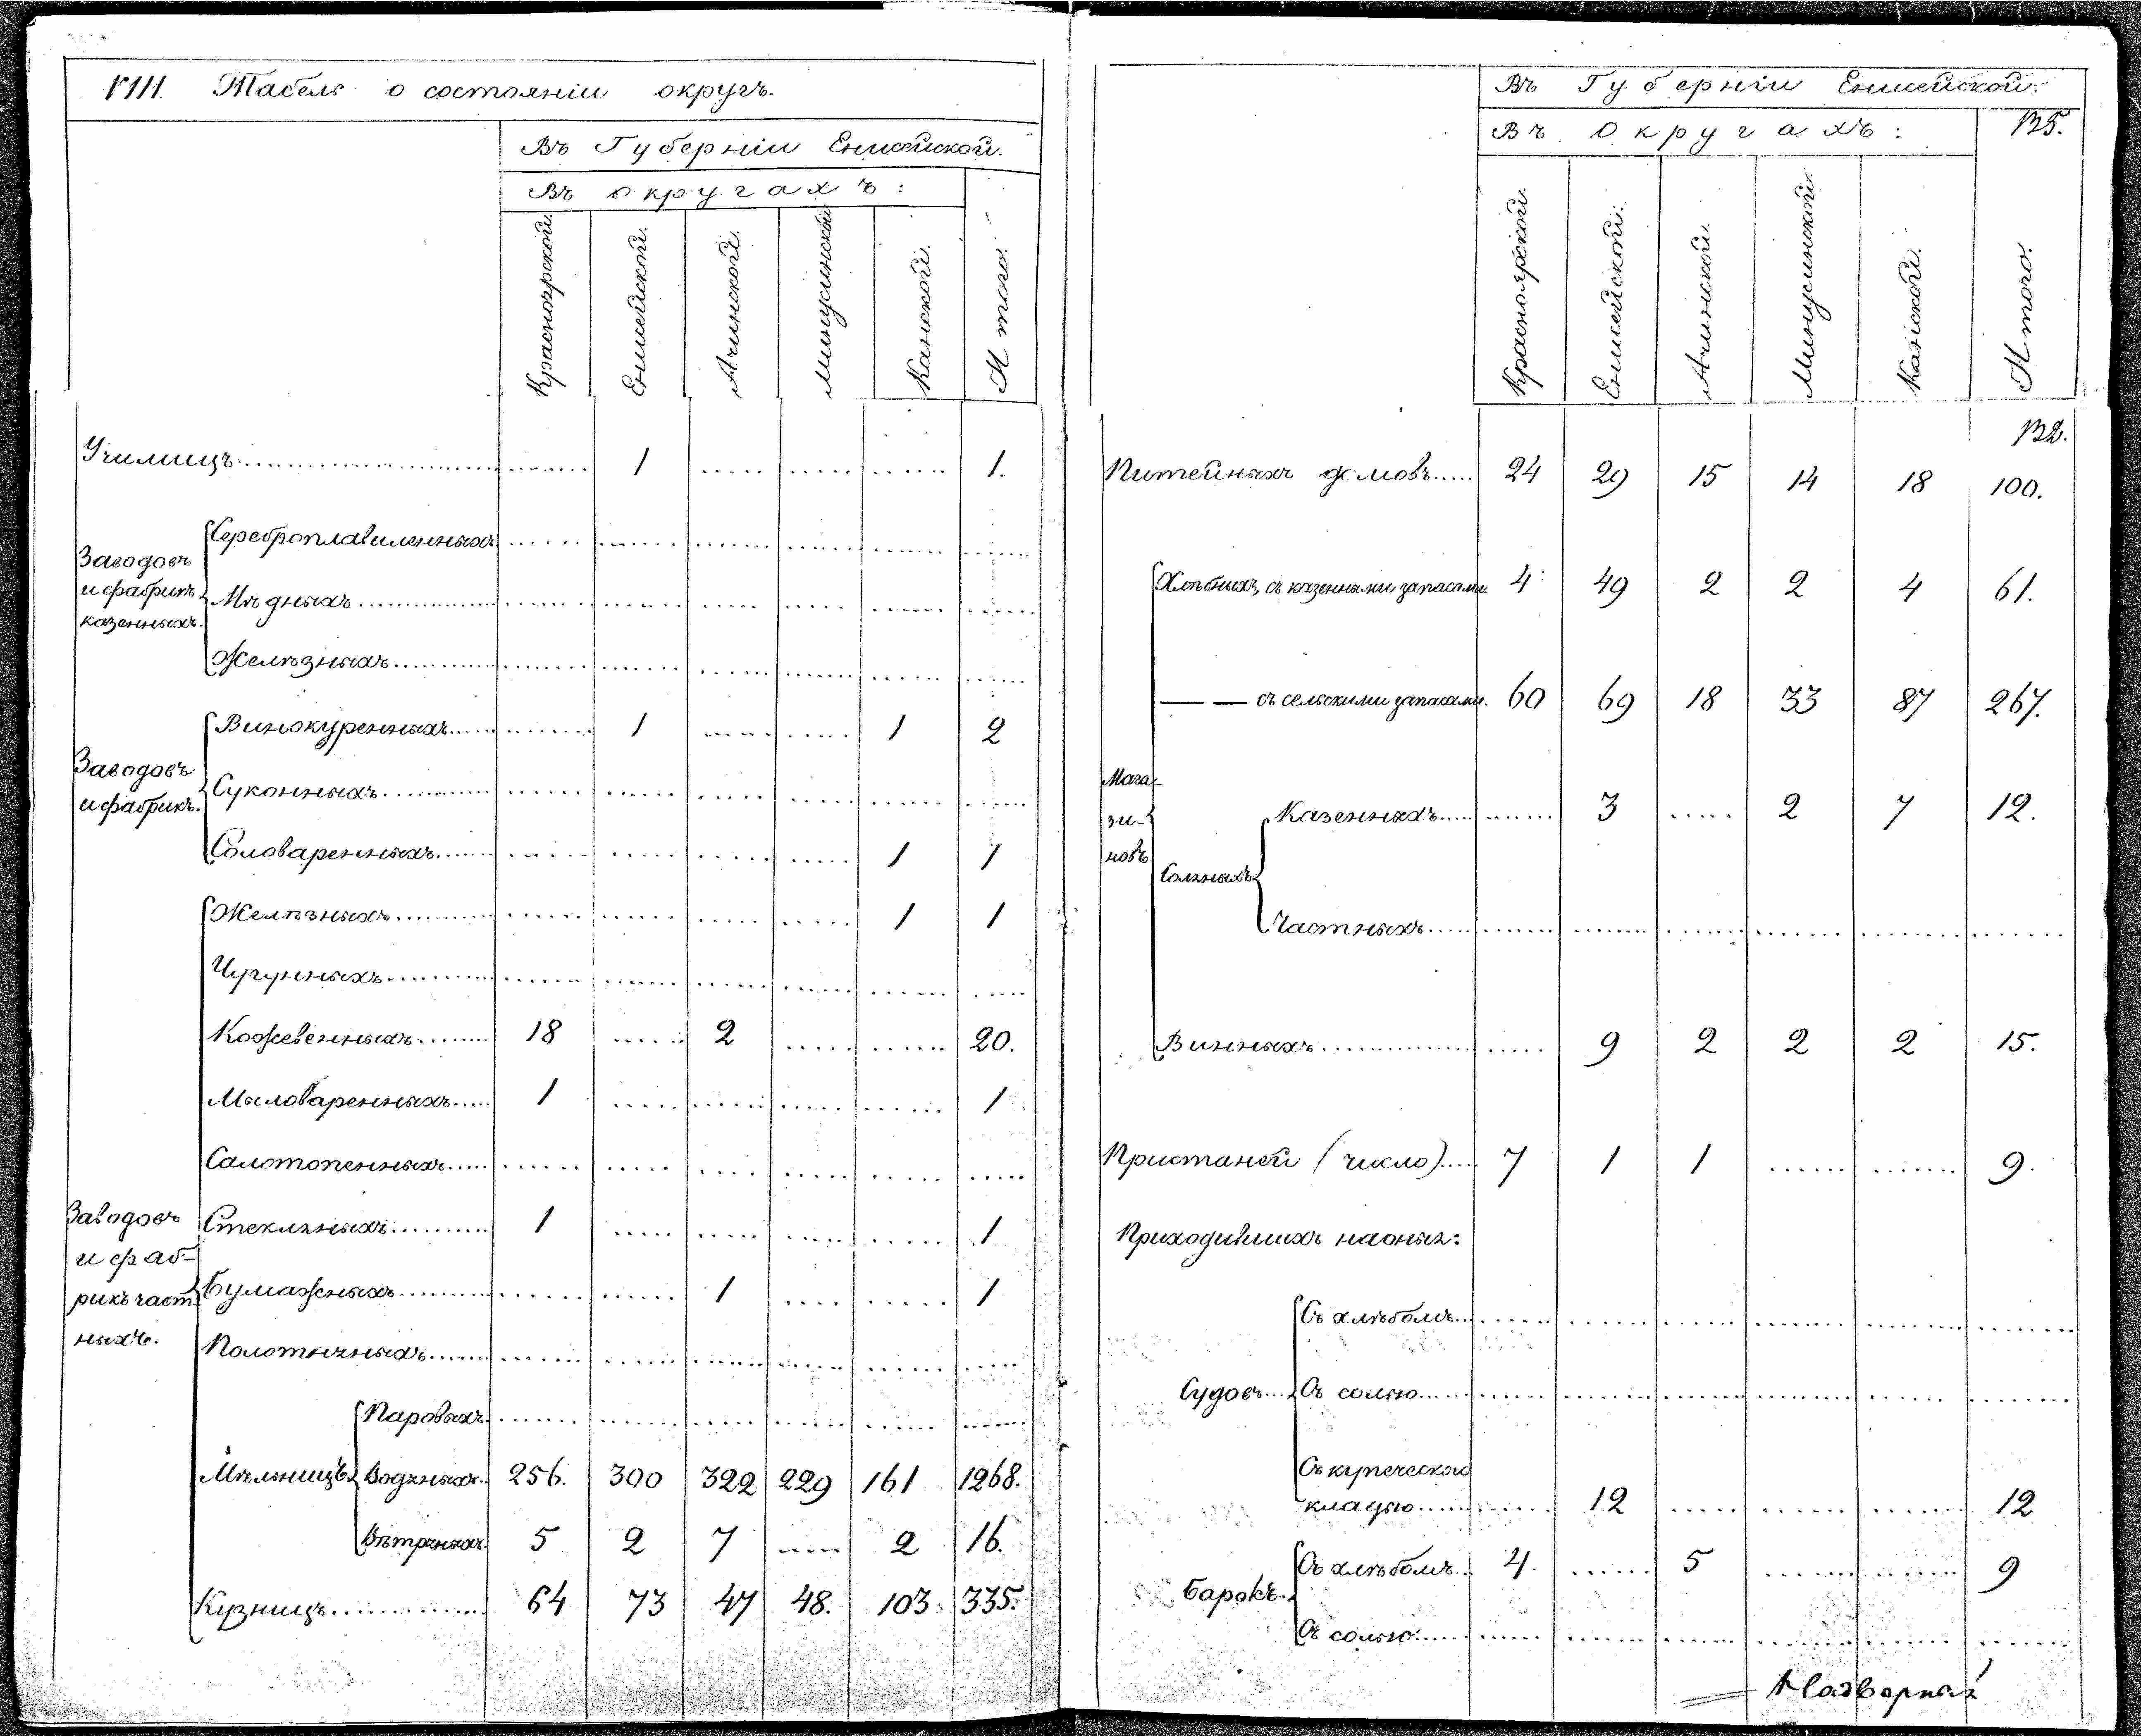 VIII. Табель о состояніи округъ.
Въ Губерніи Енисейской.
Въ округахъ:
Красноярской.
Енисейской.
Ачинской.
Минусинской
Канской.
Итого.
Училищъ 1 1.
Заводовъ
и фабрикъ
казенныхъ.
Сереброплавиленныхъ
Мѣдныхъ
Желѣзныхъ
Заводовъ
и фабрикъ.
Винокуренныхъ 1 1 2
Суконныхъ
Солеваренныхъ 1 1
Заводовъ
и фаб-
рикъ част
ныхъ.
Желѣзныхъ 1 1
Чугунныхъ
Кожевенныхъ 18 2 20.
Мыловаренныхъ 1 1
Салотопенныхъ
Стеклянныхъ 1 1
Бумажныхъ 1 1
Полотнянныхъ
Мѣльницъ
Паровыхъ
Водяныхъ 256. 300 322 229 161 1268.
Вѣтряныхъ 5 2 7 2 16.
Кузницъ 64 73 47 48. 103 335.
Въ Губерніи Енисейской.
Въ округахъ: 135.
Красноярской.
Енисейской.
Ачинской.
Минусинской.
Канской.
Итого.
132.
Питейныхъ домовъ 24 29 15 14 18 100.
Мага-
зи-
новъ
Хлѣбныхъ, съ казенными запасами 4 49 2 2 4 61.
— — съ сельскими запасами. 60 69 18 33 87 267.
Соляныхъ
Казенныхъ 3 2 7 12.
Частныхъ
Винныхъ 9 2 2 2 15.
Пристаней (число) 7 1 1 9.
Приходившихъ на оныя:
Судовъ
Съ хлѣбомъ
Съ солью
Съ купеческою
кладью 12 12
Барокъ
Съ хлѣбомъ 4. 5 9
Съ солью
Надворный